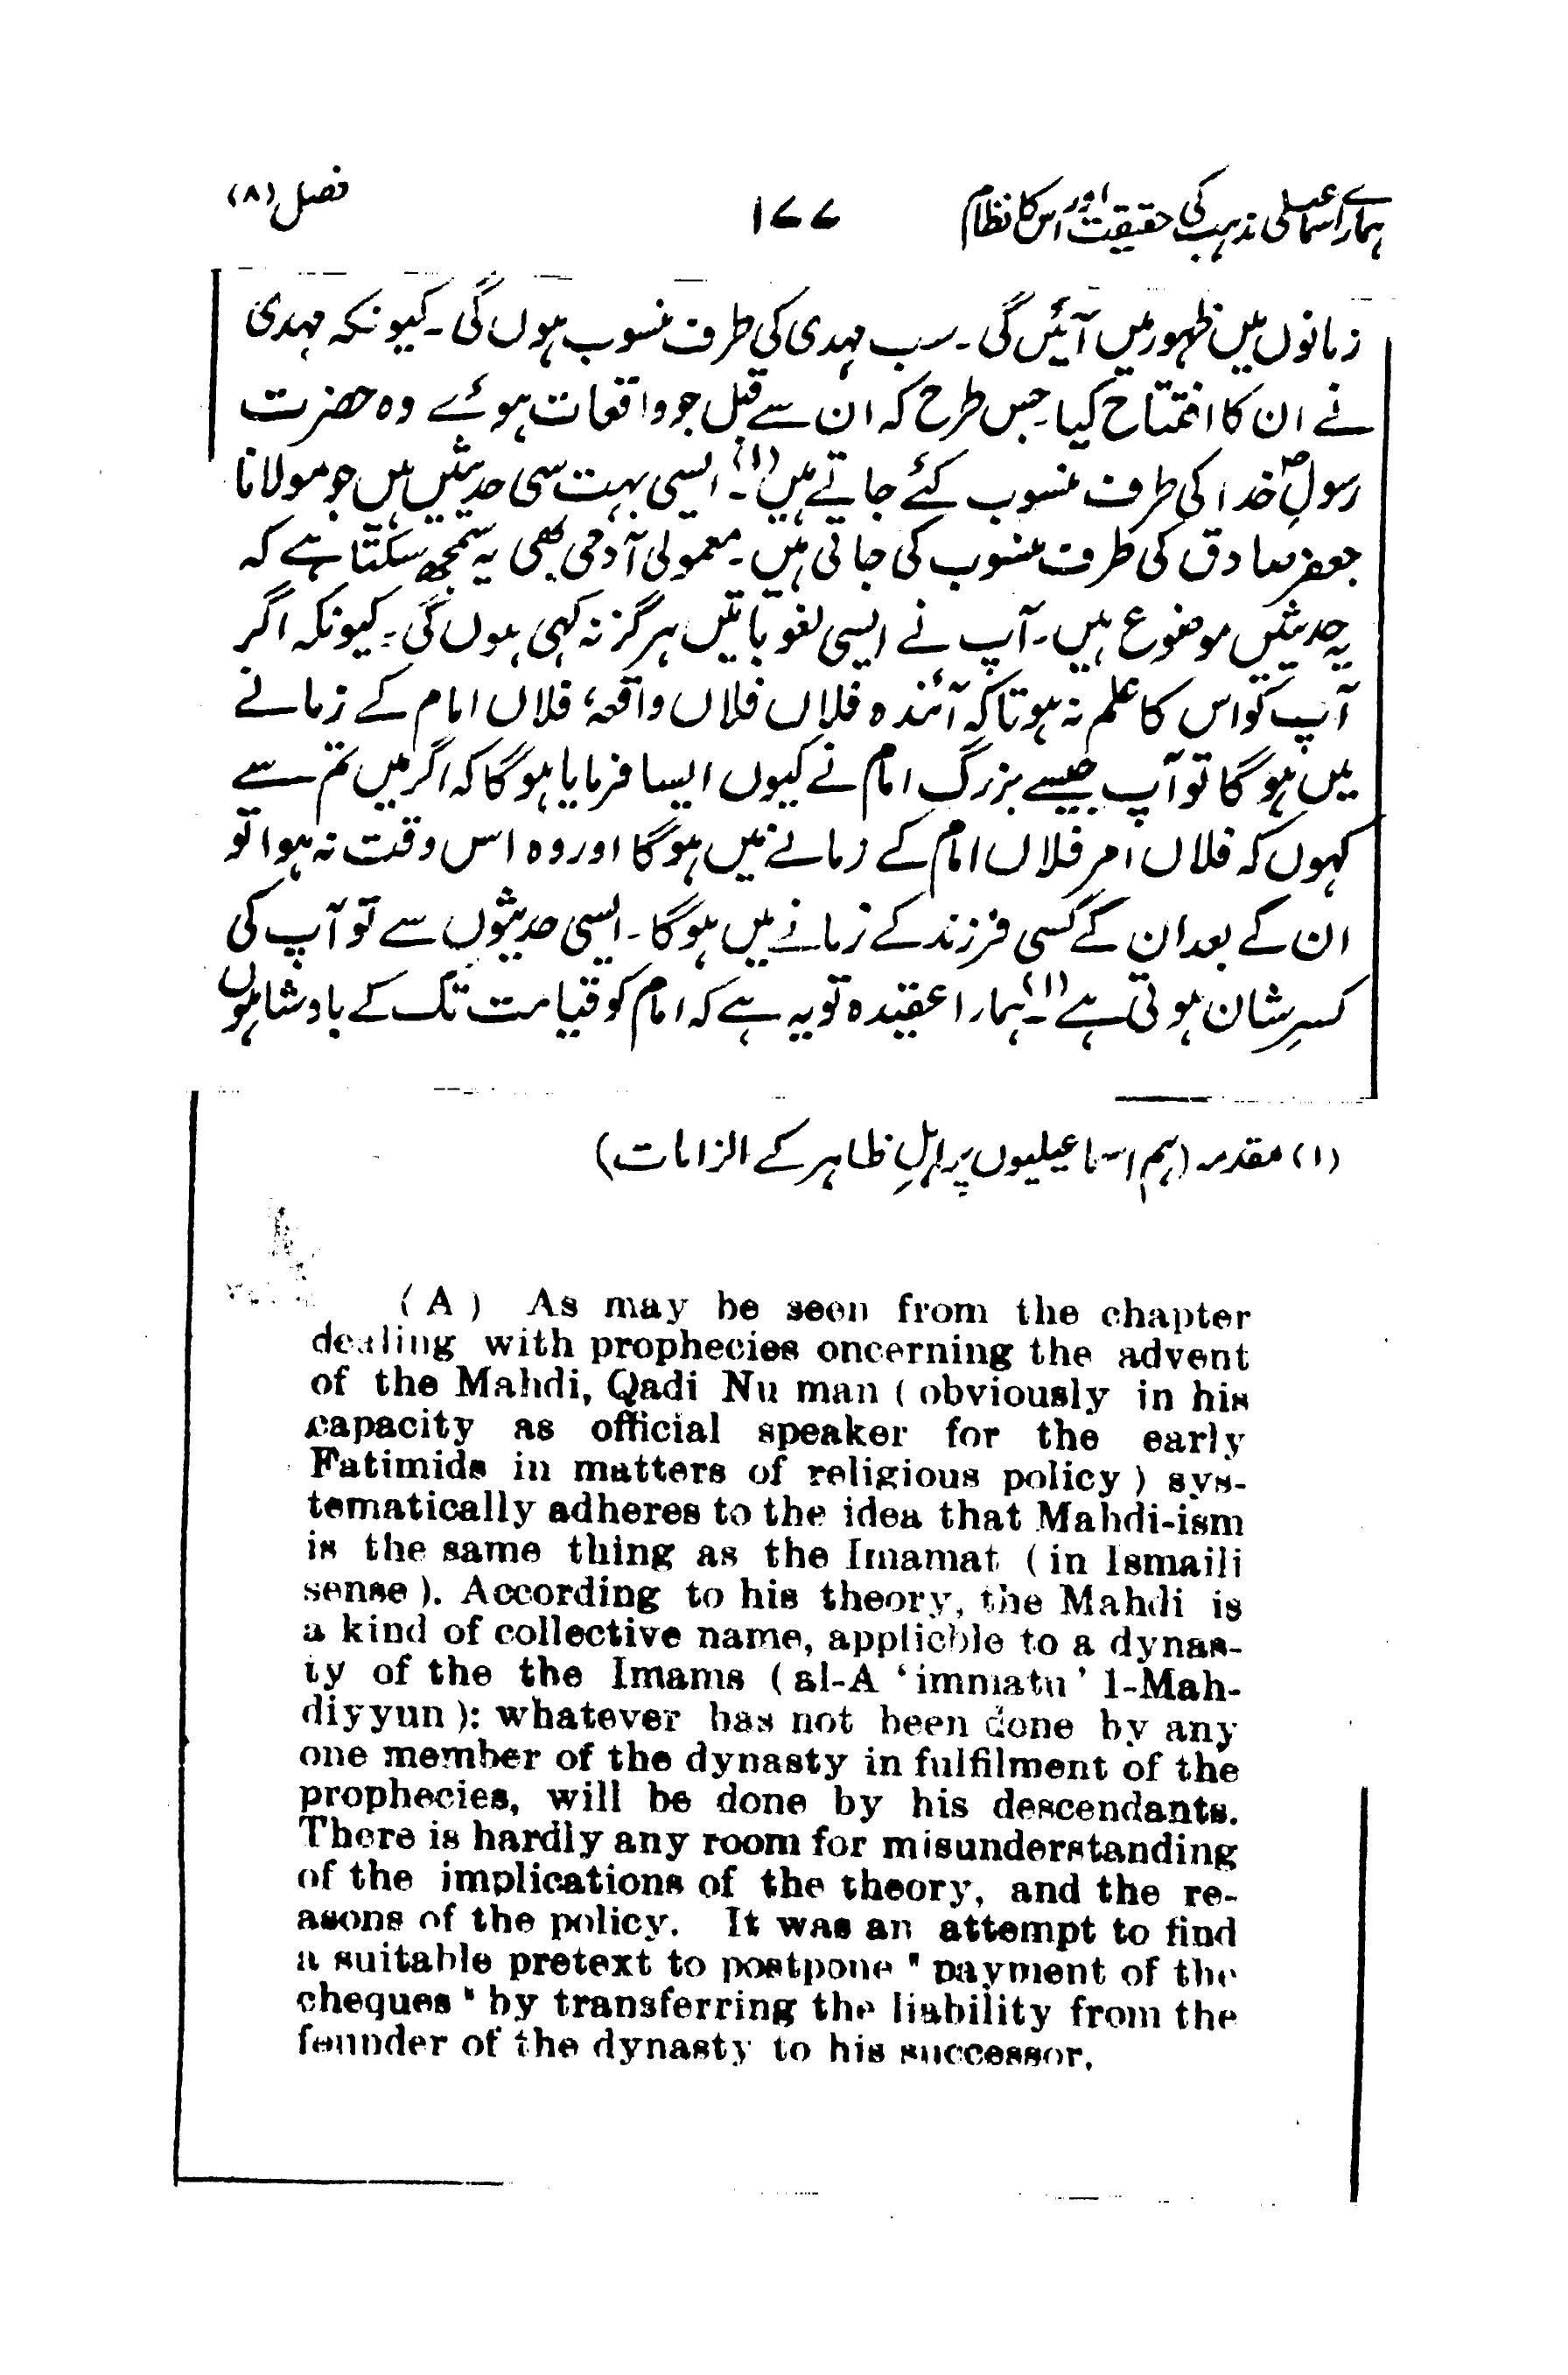 ہمارے اسماعیلی مذہب کی حقیقت اور اس کا نظام ۱۷۷ فصل (۸)
زمانوں میں ظہور میں آئیں گی ۔ سب مہدی کی طرف منسوب ہوں گی ۔ کیونکہ مہدی
نے ان کا افتتاح کیا ۔ جس طرح کہ ان سے قبل جو واقعات ہوئے وہ حضرت
رسولِؐ خدا کی طرف منسوب کئے جاتے ہیں (۱)۔ ایسی بہت سی حدیثیں ہیں جو مولانا
جعفر صادق کی طرف منسوب کی جاتی ہیں ۔ معمولی آدمی بھی یہ سمجھ سکتا ہے کہ
یہ حدیثیں موضوع ہیں ۔ آپ نے ایسی لغو باتیں ہرگز نہ کہی ہوں گی ۔ کیونکہ اگر
آپ کو اس کا علم نہ ہوتا کہ آئندہ فلاں فلاں واقعہ، فلاں امام کے زمانے
میں ہو گا تو آپ جیسے بزرگ امام نے کیوں ایسا فرمایا ہو گا کہ اگر میں تم سے
کہوں کہ فلاں امر فلاں امام کے زمانے میں ہو گا اور وہ اس وقت نہ ہوا تو
ان کے بعد ان کے کسی فرزند کے زمانے میں ہو گا ۔ ایسی حدیثوں سے تو آپ کی
کسرِ شان ہوتی ہے (۱)۔ ہمارا عقیدہ تو یہ ہے کہ امام کو قیامت تک کے بادشاہوں
(۱) مقدمہ (ہم اسماعیلیوں پر اہلِ ظاہر کے الزامات)
(A) As may be seen from the chapter
dealing with prophecies oncerning the advent
of the Mahdi, Qadi Nu man (obviously in his
capacity as official speaker for the early
Fatimids in matters of religious policy) sys-
tematically adheres to the idea that Mahdi-ism
is the same thing as the Imamat (in Ismaili
sense). According to his theory, the Mahdi is
a kind of collective name, applicble to a dynas-
ty of the the Imams (al-A 'immatu' l-Mah-
diyyun): whatever has not been done by any
one member of the dynasty in fulfilment of the
prophecies, will be done by his descendants.
There is hardly any room for misunderstanding
of the implications of the theory, and the re-
asons of the policy. It was an attempt to find
a suitable pretext to postpone "payment of the
cheques" by transferring the liability from the
founder of the dynasty to his successor.